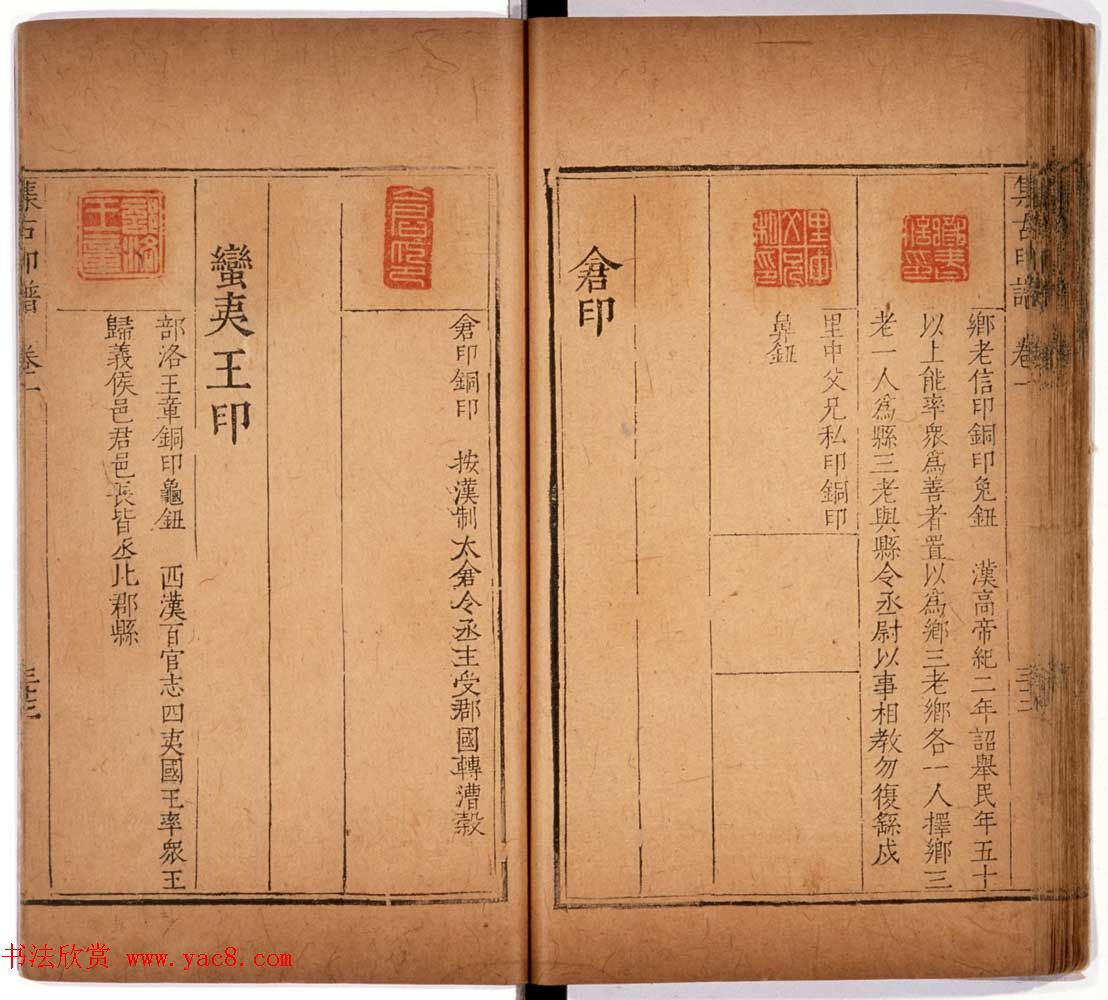 集古印譜 卷一
鄉老信印銅印兔鈕 漢高帝紀二年詔舉民年五十
以上能率衆爲善者置以爲鄉三老鄉各一人擇鄉三
老一人爲縣三老與縣令丞尉以事相教勿復繇戍
里中父兄私印銅印
鼻鈕
倉印
倉印
倉印銅印 按漢制太倉令丞主受郡國轉漕穀
蠻夷王印
部洛王章銅印龜鈕 西漢百官志四夷國王率衆王
歸義侯邑君邑長皆丞比郡縣
集古印譜 卷二
书法欣赏 www.yac8.com